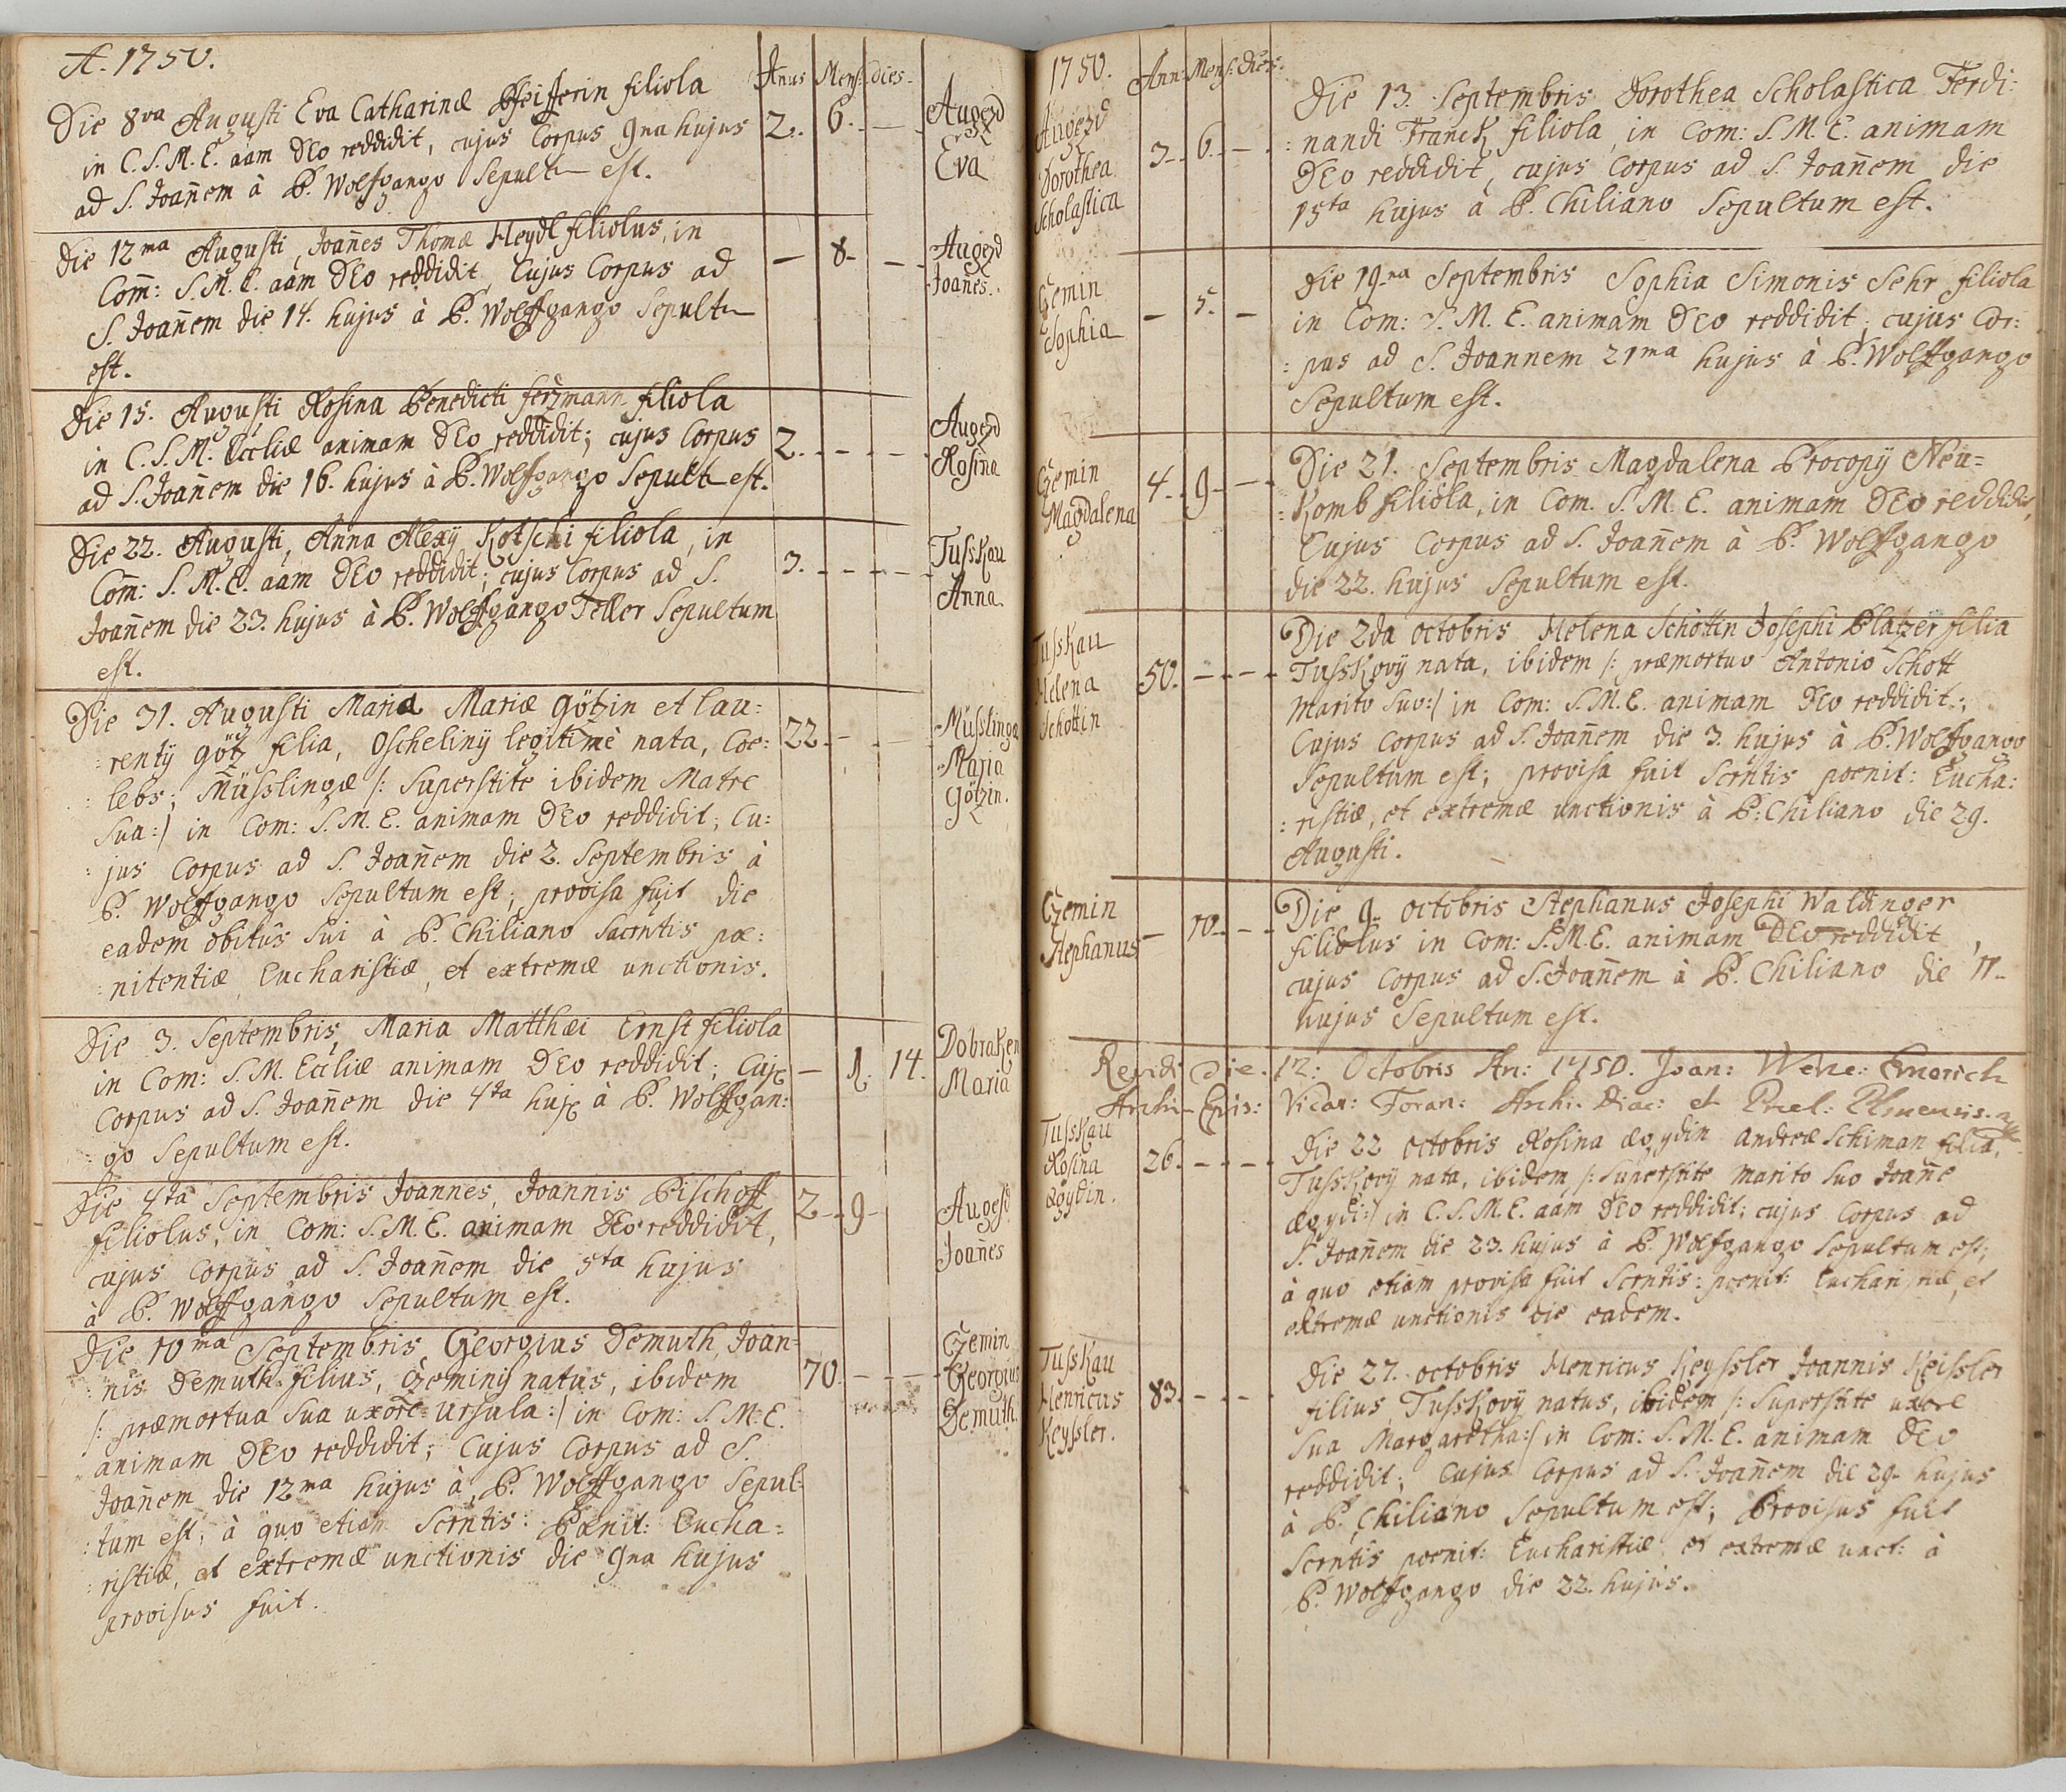 A. 1750.
Anus Mens: dies.
Die 8va Augusti Eva Catharinæ Pfeifferin filiola
in C. S. M. E. aam DEo reddidit, cujus Corpus 9na hujus
ad S. Joañem à P. Wolfgango Sepult est.
2. 6. — .
Augezd
Eva
Die 12ma Augusti, Joañes Thomæ Heydl filiolus, in
Com̄: S. M. E. aam DEo reddidit, Cujus Corpus ad
S. Joañem die 14. hujus à P. Wolffgango Sepult
est.
— 8 — — .
Augezd
Joañes.
Die 15. Augusti Rosina Benedicti ferzmann filiola
in C. S. M. Eccliæ animam DEo reddidit; cujus Corpus
ad S. Joañem die 16. hujus à P. Wolffgango Sepult est.
2. — — .
Augezd
Rosina
Die 22. Augusti, Anna Alexÿ Kotschi filiola, in
Com̄: S. M. E. aam DEo reddidit; cujus Corpus ad S.
Joañem die 23. hujus à P. Wolffgango Teller Sepultum
est.
3. — — —
Tusskau
Anna.
Die 31. Augusti Maria Mariæ Götzin et Lau:
:rentÿ Götz filia, Oschelinÿ legitimè nata, Coe:
:lebs; Müsslingæ /: Superstite ibidem Matre
Sua:/ in Com: S. M. E. animam DEo reddidit; Cu:
:jus Corpus ad S. Joañem die 2. Septembris à
P. Wolffgango Sepultum est; provisa fuit die
eadem obitus Sui à P. Chiliano Sacrntis pæ:
:nitentiæ, Eucharistiæ, et extremæ unctionis.
22. — —
Müsslinga
Maria
Götzin.
Die 3. Septembris, Maria Matthæi Ernst filiola
in Com: S. M. Eccliæ animam DEo reddidit; Cuj
Corpus ad S. Joañem die 4ta huj à P. Wolffgan:
:go Sepultum est.
— 1. 14.
Dobraken
Maria
Die 4ta Septembris Joannes, Joannis Bischoff
filiolus, in Com: S. M. E. animam DEo reddidit,
cujus Corpus ad S. Joañem die 5ta hujus
à P. Wolffgango Sepultum est.
2 — 9 —
Augezd
Joañes
Die 10ma Septembris Georgius Demuth, Joan=
:nis Demuth filius, Czeminÿ natus, ibidem
/: præmortua Sua uxore Ursula:/ in Com: S. M. E.
animam DEo reddidit; Cujus Corpus ad S.
Joañem die 12ma hujus à P. Wolffgango Sepul:
:tum est; à quo etiam Scrntis: Pænit: Eucha=
:ristiæ, et extremæ unctionis die 9na hujus
provisus fuit.
70. — — —
Czemin
Georgius
Demuth.
1750. Ann: Mens: dies:
Augezd
Dorothea
Scholastica
3 — 6 — .
Die 13. Septembris Dorothea Scholastica Ferdi:
:nandi Franck filiola, in Com: S. M. E. animam
DEo reddidit, cujus Corpus ad S. Joañem die
15ta hujus à P. Chiliano Sepultum est.
Czemin
Sophia
— 5. —
Die 19na Septembris Sophia Simonis Sehr filiola
in Com: S. M. E. animam DEo reddidit, cujus Cor:
:pus ad S. Joannem 21ma hujus à P. Wolffgango
Sepultum est.
Czemin
Magdalena
4. 9 — .
Die 21. Septembris Magdalena Procopÿ Neu=
:Komb filiola, in Com. S. M. E. animam DEo reddidit,
Cujus Corpus ad S. Joañem à P. Wolffgango
die 22. hujus Sepultum est.
Tusskau
Helena
Schottin
50. — — —
Die 2da Octobris Helena Schöttin Josephi Platzer filia
Tusskovÿ nata, ibidem /: præmortuo Antonio Schott
Marito Suo:/ in Com: S. M. E. animam DEo reddidit;
Cujus Corpus ad S. Joañem die 3. hujus à P. Wolffgango
Sepultum est; provisa fuit Scrntis poenit: Eucha:
:ristiæ, et extremæ unctionis à P. Chiliano die 29.
Augusti.
Czemin
Stephanus
— 10. — .
Die 9. Octobris Stephanus Josephi Waldinger
filiolus in Com: S. M. E. animam DEo reddidit,
cujus Corpus ad S. Joañem à P. Chiliano die 11.
hujus Sepultum est.
Revidi Die 12: Octobris An: 1750. Joan: Emerich
Archi- Epis: Vican: Foran: Archi-Diac: et
Tusskau
Rosina
Ægydin.
26. — — —
Die 22 Octobris Rosina Ægydin Andreæ Schiman filia,
Tusskovÿ nata, ibidem /: Superstite Marito Suo Joañe
Ægydi:/ in C. S. M. E. aam DEo reddidit; cujus Corpus ad
S. Joañem die 23. hujus à P. Wolffgango Sepultum est;
à quo etiam provisa fuit Scrntis: poenit: Eucharistiæ, et
extremæ unctionis die eadem.
Tusskau
Henricus
Keyssler.
83. — — —
Die 27. Octobris Henricus Keyssler Joannis Keissler
filius, Tusskovÿ natus, ibidem /: Superstite uxore
Sua Margaretha:/ in Com: S. M. E. animam DEo
reddidit; cujus Corpus ad S. Joañem die 29. hujus
à P. Chiliano Sepultum est; Provisus fuit
Scrntis poenit: Eucharistiæ et extremæ unct: à
P. Wolffgango die 22. hujus.